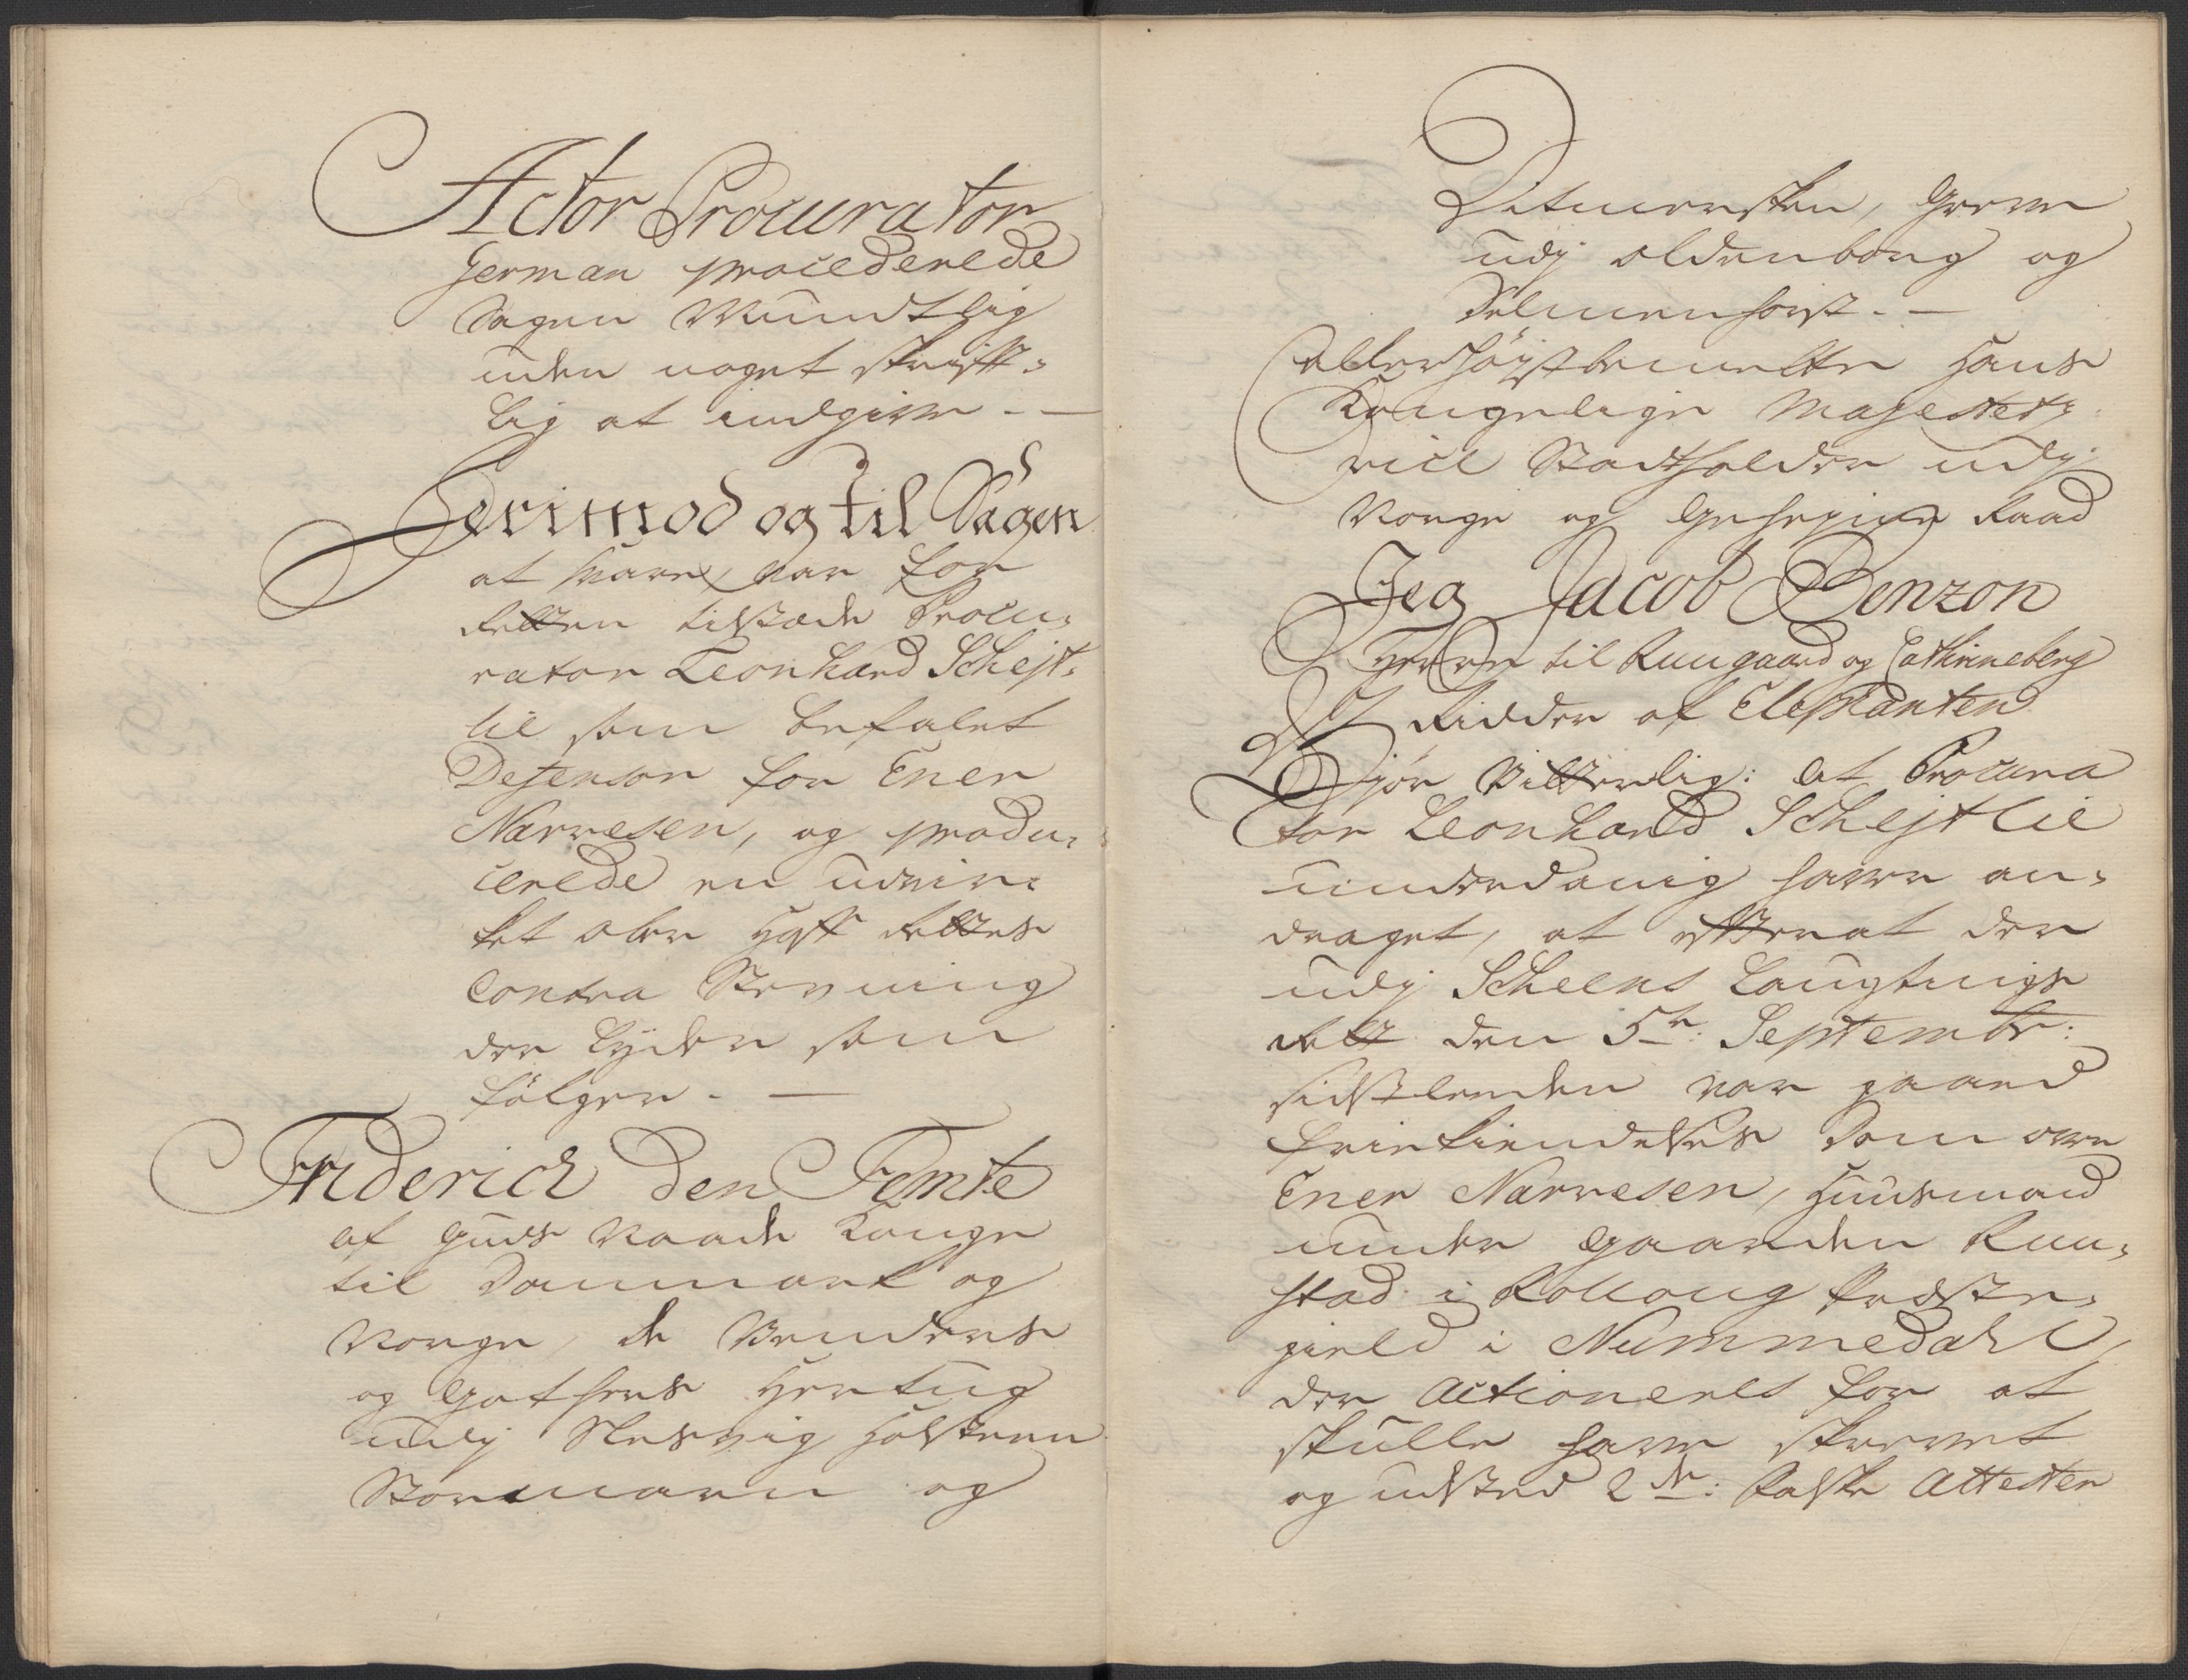 Actor Procurator
German procederede
Sagen Mundtlig
uden noget skrift-
lig at indgive. —
Derimod og til Sagen
at svare, var for
Retten tilstæde Procu-
rator Leonhard Schejt-
lie som befalet
Defensor for Ener
Narvesen, og produ-
cerede en udvir-
ket Ober Hoff Rettes
Contra Stevning
der Lyder som
følger. —
Friderich den Femte
af Guds Naade Konge
til Danmark og
Norge, de Venders
og Gothers Hertug
udj Slesvig Holsteen
Stormarn og
Ditmersken, Greve
udj Oldenborg og
Delmenhorst. —
Allerhøystbemelte Hans
Kongelige Majestets
vice Stadtholder udj
Norge og Geheyme Raad
Jeg Jacob Benzon
Herre til Ruugaard og Cathrineberg
Ridder af Elephanten
Giør Vitterlig: at Procura
tor Leonhard Schejtlie
underdanig haver an-
draget, at efterat der
udj Scheens Laugtings
Rett den 5te Septembr:
sidstleeden var gaaed
frikiendelses Dom over
Ener Narvesen, Huusmand
under Gaarden Ruu-
stad i Rolloug Præste-
gield i Nummedahl,
der Actioneres for at
skulle have skrevet
og udsted 2de: Falske Attester